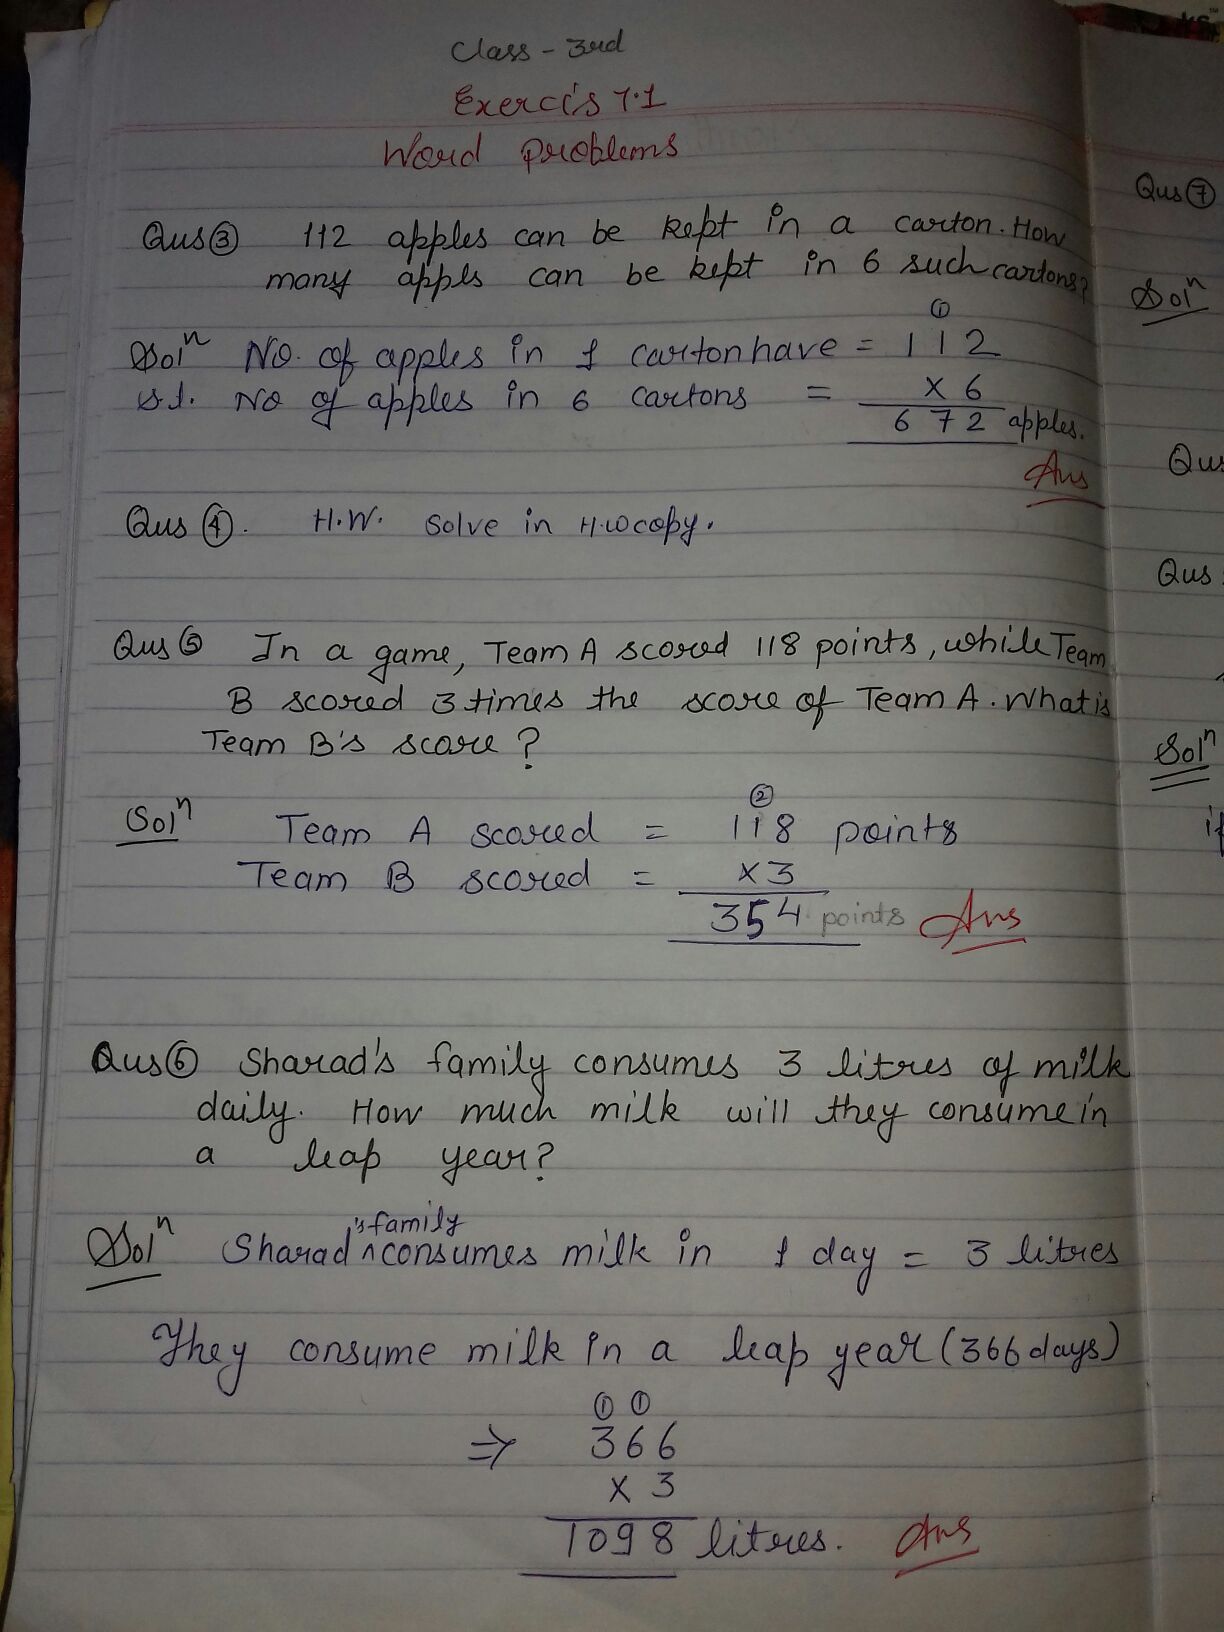 Class - 3rd
Exercis 7.1
Word problems
Qus ③ 112 apples can be kept in a carton. How
many appls can be kept in 6 such cartons?
①
Solⁿ No. of apples in 1 carton have = 112
No of apples in 6 cartons = × 6
672 apples.
Ans
Qus ④. H.W. Solve in H.w copy.
Qus ⑤ In a game, Team A scored 118 points, while Team
B scored 3 times the score of Team A. What is
Team B's score?
②
Solⁿ Team A scored = 118 points
Team B scored = ×3
354 points Ans
Qus ⑥ Sharad's family consumes 3 litres of milk
daily. How much milk will they consume in
a leap year?
's family
Solⁿ Sharad ^ consumes milk in 1 day = 3 litres
They consume milk in a leap year (366 days)
① ①
⇒ 366
× 3
1098 litres. Ans
Qus ⑦
Solⁿ
Qus
Qus
Solⁿ